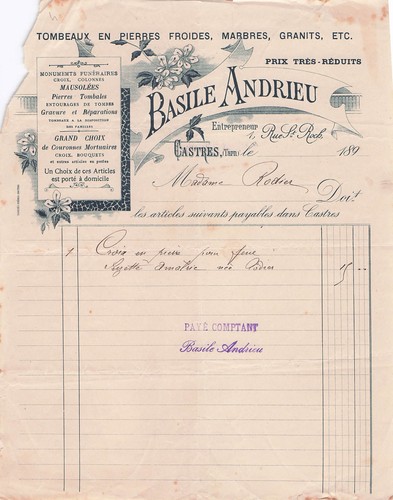 TOMBEAUX EN PIERRES FROIDES, MARBRES, GRANITS, ETC.
PRIX TRÈS-RÉDUITS
MONUMENTS FUNÉRAIRES
CROIX, COLONNES
MAUSOLÉES
Pierres Tombales
ENTOURAGES DE TOMBES
Gravure et Réparations
TOMBEAUX A LA DISPOSITION
DES FAMILLES
GRAND CHOIX
de Couronnes Mortuaires
CROIX, BOUQUETS
et autres articles en perles
Un Choix de ces Articles
est porté à domicile
BASILE ANDRIEU
Entrepreneur
1, Rue St. Roch.
CASTRES, (Tarn) le 189
Madame Rodier
Doit
les articles suivants payables dans Castres
1 Croix en pierre pour feue
née 15 "
PAYÉ COMPTANT
Basile Andrieu